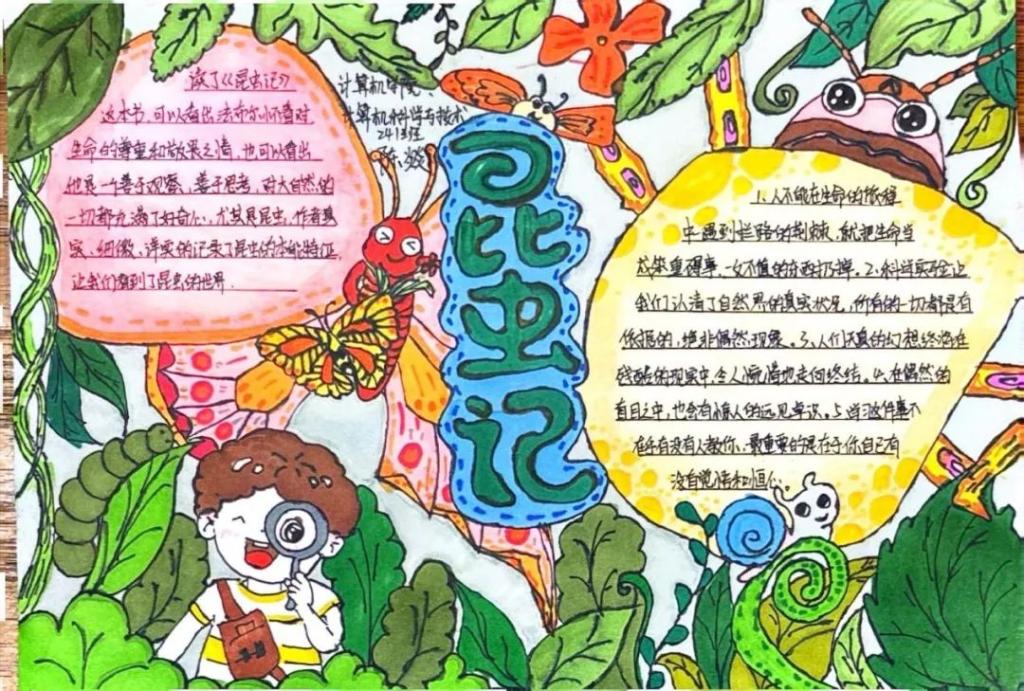 读了《昆虫记》
这本书,可以看出法布尔怀着对
生命的尊重和敬畏之情,也可以看出
他是一个善于观察,善于思考,对大自然的
一切都充满了好奇心,尤其是昆虫,作者真
实、细微、详实的记录了昆虫的本能特征,
让我们看到了昆虫的世界.
计算机学院
计算机科学与技术
2413班
陈
昆虫记
1、人不能在生命的旅程
中遇到拦路的荆棘,就把生命当
成第重得事,一文不值的东西扔掉。2、科学实验让
我们认清了自然界的真实状况,所有的一切都是有
依据的,绝非偶然现象。3、人们天真的幻想终将在
残酷的现实中,令人惋惜地走向终结。4、在偶然的
盲目之中,也会有惊人的远见卓识。5、学习这件事不
在乎有没有人教你,最重要的是在于你自己有
没有觉悟和恒心。